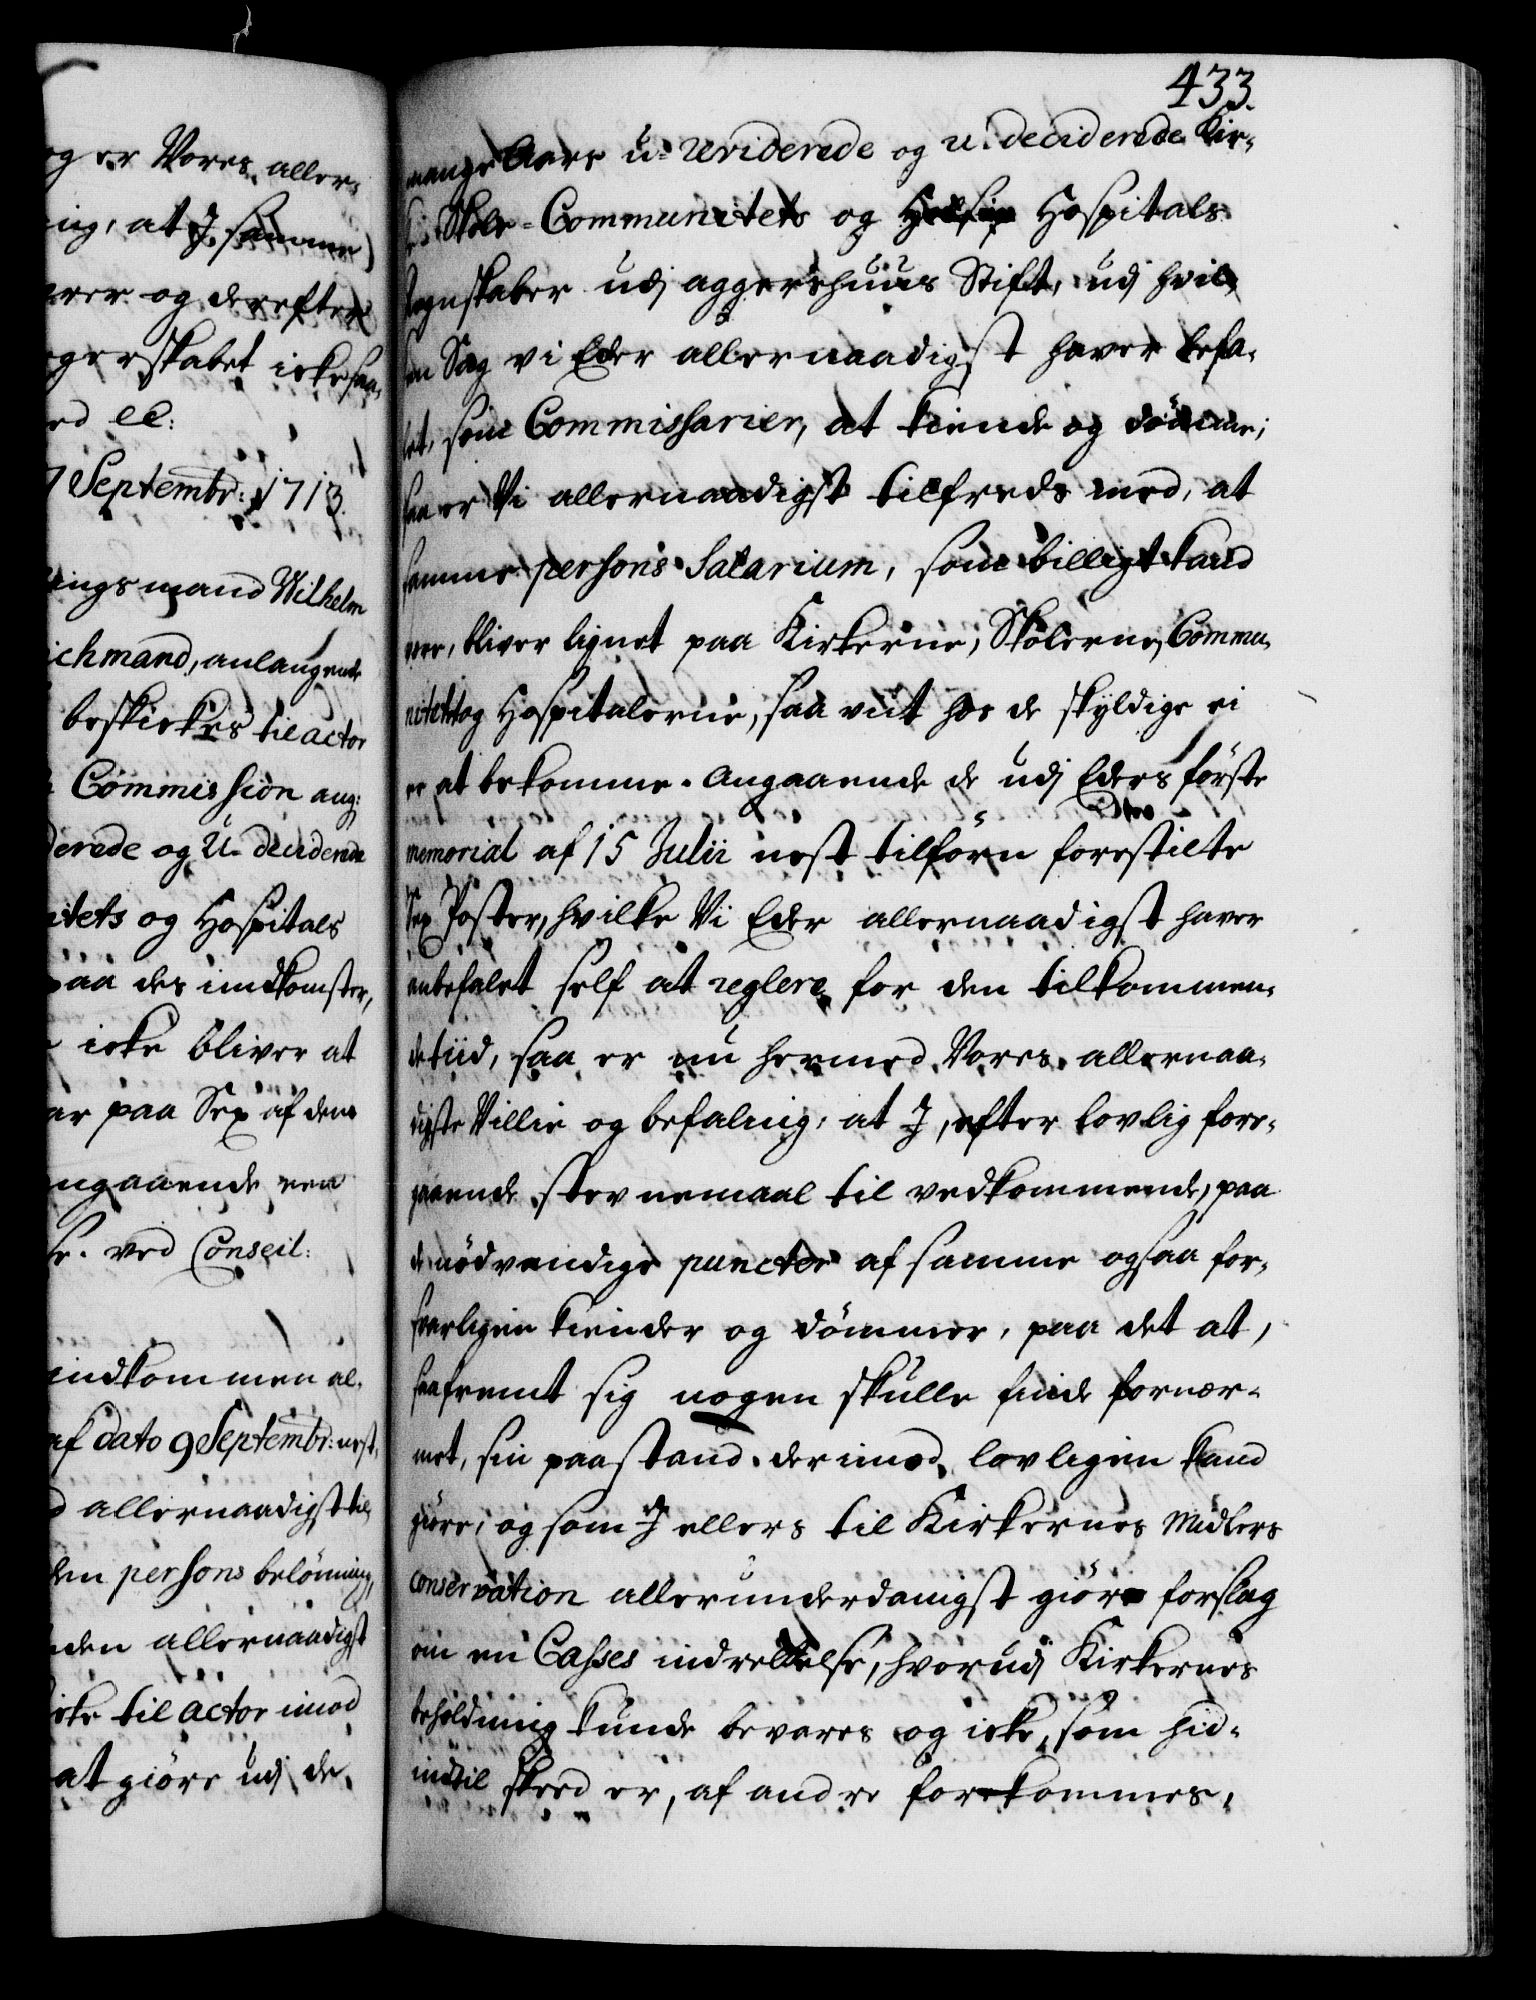 og er Vores aller-
ing, at I samme
erer og derefter
egerskabet icke saa-
ed ec:
7 Septembr: 1713.
ings mand Wilhelm
ichmand, anlangende
beskickes til actor
Commission ang:
derede og U-deciderede
itets og Hospitals
paa des indkomster,
icke bliver at
ar paa Sex af dens
angaaende ven
se. ved Conseil:
indkommen al-
af dato 9 Septembr: nest-
allernaadigst til-
den persons belönning,
den allernaadigst
icke til actor imod
at giöre udj de
433.
mange Aars u-reviderede og u-deciderede Kir-
ke- Skole-Communitets og Hospitals
Regnskaber udj aggershuus Stift, udj hvil-
ken Sag vi Eder allernaadigst haver befa-
let, som Commissarier, at kiende og dömme;
saa er Vi allernaadigst tilfreds med, at
samme persons Salarium, som billigt kand
vere, bliver lignet paa Kirkerne, Skolerne, Commu-
nitetet og Hospitalerne, saa vit hos de skyldige ei
er at bekomme. Angaaende de udj Eders förste
memorial af 15 Julii nest tilforn forestilte
Sex Poster, hvilke Vi Eder allernaadigst haver
anbefalet self at reglere for den tilkommen-
de tiid, saa er nu hermed Vores allernaa-
digste Villie og befaling, at I, efter lovlig fore-
gaaende stevnemaal til vedkommende, paa
de nödvendige puncter af samme ogsaa for-
svarligen kiender og dömmer, paa det at,
saafremt sig nogen skulle finde fornær-
met, sin paastand derimod lovligen kand
giöre; og som I ellers til Kirkernes Midlers
conservation allerunderdanigst giöre forslag
om en Casses indrettelse, hvorudj Kirkernes
beholdning kunde bevares og icke, som hid-
indtil skeed er, af andre forkommes,